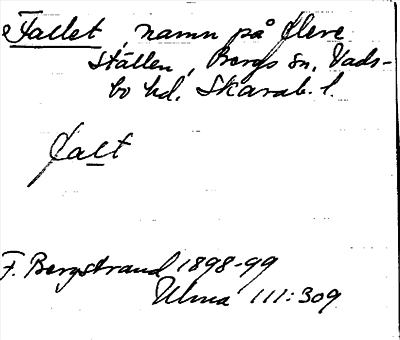 Fallet, namn på flere
ställen, Bergs sn, Vads-
bo hd. Skarab. l.
falt
F. Bergstrand 1898-99
Ulma 111:309